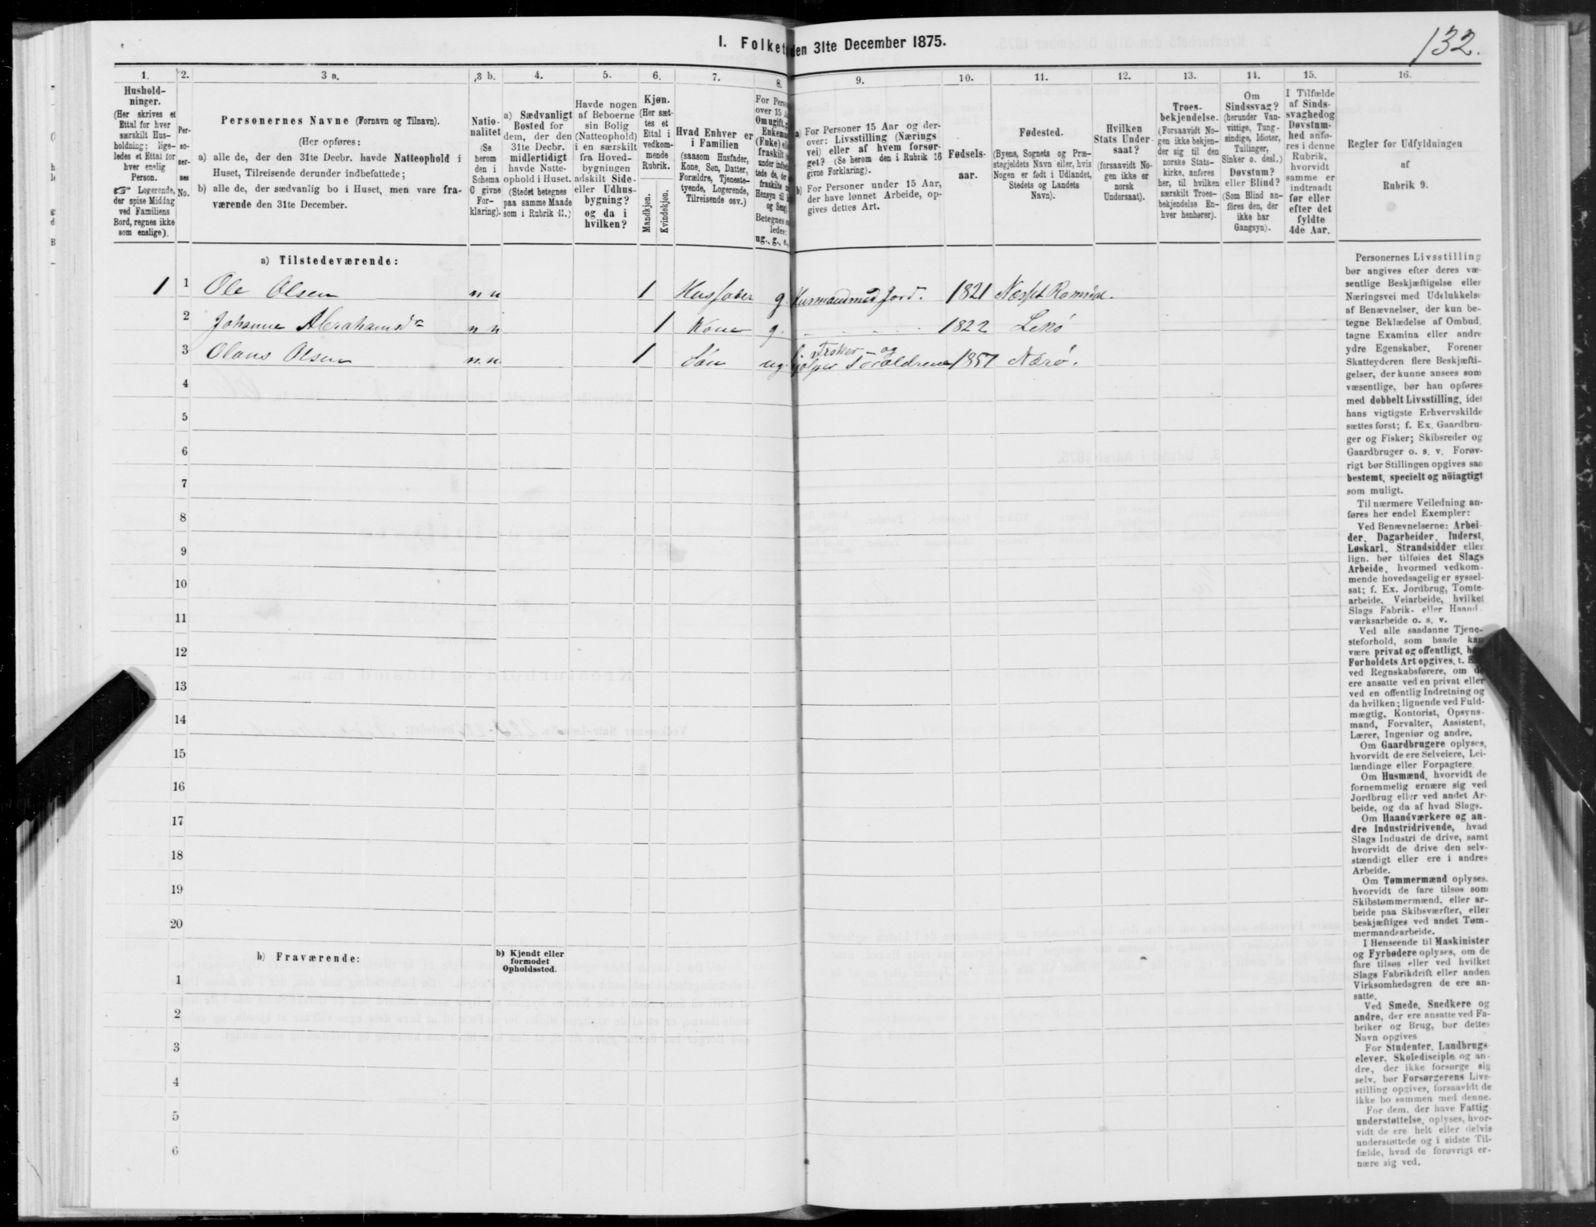 132.
I. Folket den 31te December 1875.
1.
2.
3 a.
3 b.
4.
5.
6.
7.
8.
9.
10.
11.
12.
13.
14.
15.
16.
Hushold-
ninger.
(Her skrives et
Ettal for hver
særskilt Hus-
holdning; lige-
ledes et Ettal for
hver enslig
Person.
☞ Logerende,
der spise Middag
ved Familiens
Bord, regnes ikke
som enslige).
Per-
so-
ner-
nes
No.
Personernes Navne (Fornavn og Tilnavn).
(Her opføres:
a) alle de, der den 31te Decbr. havde Natteophold i
Huset, Tilreisende derunder indbefattede;
b) alle de, der sædvanlig bo i Huset, men vare fra-
værende den 31te December.
Natio-
nalitet
(Se
herom
den i
Schema
C givne
For-
klaring).
a) Sædvanligt
Bosted for
dem, der den
31te Decbr.
midlertidigt
havde Natte-
ophold i Huset.
(Stedet betegnes
paa samme Maade
som i Rubrik 11.)
Havde nogen
af Beboerne
sin Bolig
(Natteophold)
i en særskilt
fra Hoved-
bygningen
adskilt Side-
eller Udhus-
bygning?
og da i
hvilken?
Kjøn.
(Her sæt-
tes et
Ettal i
vedkom-
mende
Rubrik.
Mandkjøn.
Kvindekjøn.
Hvad Enhver er
i Familien
(saasom Husfader,
Kone, Søn, Datter,
Forældre, Tjeneste-
tyende, Logerende,
Tilreisende osv.)
For Perso
over 15 
Om ugift,
Enkem
(Enke) el
fraskilt
Betegnes
ledes:
ug., g., e.
a) For Personer 15 Aar og der-
over: Livsstilling (Nærings
vei) eller af hvem forsør-
get? (Se herom den i Rubrik 16
givne Forklaring).
b) For Personer under 15 Aar,
der have lønnet Arbeide, op-
gives dettes Art.
Fødsels-
aar.
Fødested.
(Byens, Sognets og Præ-
stegjeldets Navn eller, hvis
Nogen er født i Udlandet,
Stedets og Landets
Navn).
Hvilken
Stats Under-
saat?
(forsaavidt No-
gen ikke er
norsk
Undersaat).
Troes-
bekjendelse.
(Forsaavidt No-
gen ikke bekjen-
der sig til den
norske Stats-
kirke, anføres
her, til hvilken
særskilt Troes-
bekjendelse En-
hver henhører).
Om
Sindssvag?
(herunder Van-
vittige, Tung-
sindige, Idioter,
Tullinger,
Sinker o. desl.)
Døvstum?
eller Blind?
(Som Blind an-
føres den, der
ikke har
Gangsyn).
I Tilfælde
af Sinds-
svaghed og
Døvstum-
hed anfø-
res i denne
Rubrik,
hvorvidt
samme er
indtraadt
før eller
efter det
fyldte
4de Aar.
Regler for Udfyldningen
af
Rubrik 9.
a) Tilstedeværende:
1 1 Ole Olsen n.n 1 Husfader g. Husmand med Jord. 1821 Næsset Romsdal.
2 Johanne Abrahamsd n n 1 Kone g. 1822 Lekø
3 Olaus Olsen n.n 1 Søn ug. Fisker og hjelper Forældrene 1857 Nærø.
4
5
6
7
8
9
10
11
12
13
14
15
16
17
18
19
20
b) Fraværende:
b) Kjendt eller
formodet
Opholdssted.
1
2
3
4
5
6
Personernes Livsstilling
bør angives efter deres væ-
sentlige Beskjæftigelse eller
Næringsvei med Udelukkelse
af Benævnelser, der kun be-
tegne Beklædelse af Ombud,
tagne Examina eller andre
ydre Egenskaber. Forener
Skatteyderen flere Beskjæfti-
gelser, der kunne ansees som
væsentlige, bør han opføres
med dobbelt Livsstilling, idet
hans vigtigste Erhvervskilde
sættes først; f. Ex. Gaardbru-
ger og Fisker; Skibsreder og
Gaardbruger o. s. v. Forøv-
rigt bør Stillingen opgives saa
bestemt, specielt og nöiagtigt
som muligt.
Til nærmere Veiledning an-
føres her endel Exempler:
Ved Benævnelserne: Arbei-
der, Dagarbeider, Inderst,
Løskarl, Strandsidder eller
lign. bør tilføies det Slags
Arbeide, hvormed vedkom-
mende hovedsagelig er syssel-
sat; f. Ex. Jordbrug, Tomte-
arbeide, Veiarbeide, hvilket
Slags Fabrik- eller Haand-
værksarbeide o. s. v.
Ved alle saadanne Tjene-
steforhold, som baade kan
være privat og offentligt, bør
Forholdets Art opgives, t. E
ved Regnskabsførere, om de
ere ansatte ved en privat eller
ved en offentlig Indretning og
da hvilken; lignende ved Fuld-
mægtig, Kontorist, Opsyns-
mand, Forvalter, Assistent,
Lærer, Ingeniør og andre.
Om Gaardbrugere oplyses,
hvorvidt de ere Selveiere, Lei-
lændinge eller Forpagtere.
Om Husmænd, hvorvidt de
fornemmelig ernære sig ved
Jordbrug eller ved andet Ar-
beide, og da af hvad Slags.
Om Haandværkere og an-
dre Industridrivende, hvad
Slags Industri de drive, samt
hvorvidt de drive den selv-
stændigt eller ere i andres
Arbeide.
Om Tømmermænd oplyses,
hvorvidt de fare tilsøs som
Skibstømmermænd, eller ar-
beide paa Skibsværfter, eller
beskjæftiges ved andet Tøm-
mermandsarbeide.
I Henseende til Maskinister
og Fyrbødere oplyses, om de
fare tilsøs eller ved hvilket
Slags Fabrikdrift eller anden
Virksomhedsgren de ere an-
satte.
Ved Smede, Snedkere og
andre, der ere ansatte ved Fa-
briker og Brug, bør dettes
Navn opgives
For Studenter, Landbrugs-
elever, Skoledisciple og an-
dre, der ikke forsørge sig
selv, bør Forsørgerens Livs-
stilling opgives, forsaavidt de
ikke bo sammen med denne.
For dem, der have Fattig-
understøttelse, oplyses, hvor-
vidt de ere helt eller delvis
understøttede og i sidste Til-
fælde, hvad de forøvrigt er-
nære sig ved.